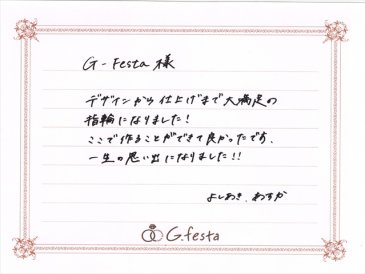 G-Festa 様
デザインから仕上げまで大満足の
指輪になりました!
ここで作ることができて良かったです。
一生の思い出になりました!!
よしあき、あすか
G.festa